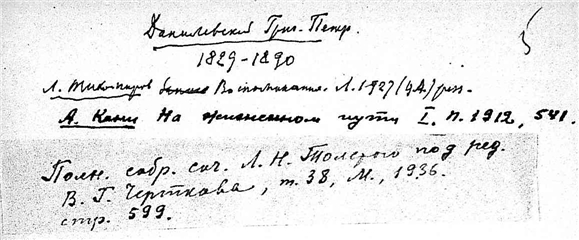 Данилевский Григ. Петр.
1829-1890
Л. Тихомиров Воспоминания. Л. 1927
А. Кони На жизненном пути I. П. 1912, 541.
Полн. собр. соч. Л. Н. Толстого под ред.
В. Г. Черткова, т. 38, М., 1936.
стр. 599.